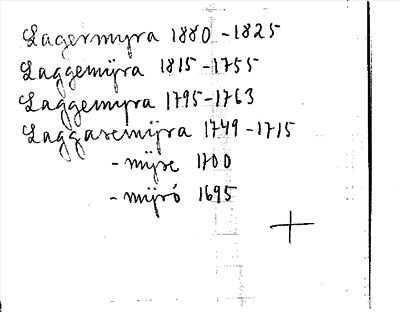 Lagermyra 1880-1825
Laggemÿra 1815-1755
Laggemyra 1795-1763
Laggaremÿra 1749-1715
- mÿre 1700
- mÿró 1695